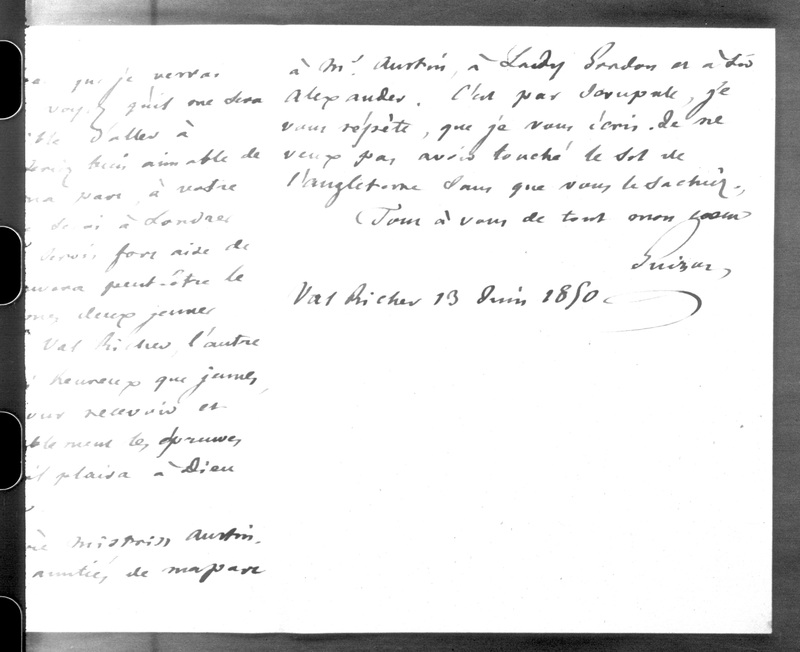 que je verrai
voyez qu'il me sera
d'aller à
bien aimable de
ma part, à votre
serai à Londres
serois fort aise de
peut-être le
deux jeunes
Val Richer, l'autre
heureux que jamais,
pour recevoir et
les épreuves
plaira à Dieu
mistriss Austin.
amitiés, de ma part
à Mr. Austin, à Lady Gordon et à Sir
Alexander. C'est par scrupule, je
vous répète, que je vous écris. Je ne
veux pas avoir touché le sol de
l'angleterre sans que vous le sachiez.
Tout à vous de tout mon coeur
Guizot
Val Richer 13 Juin 1850